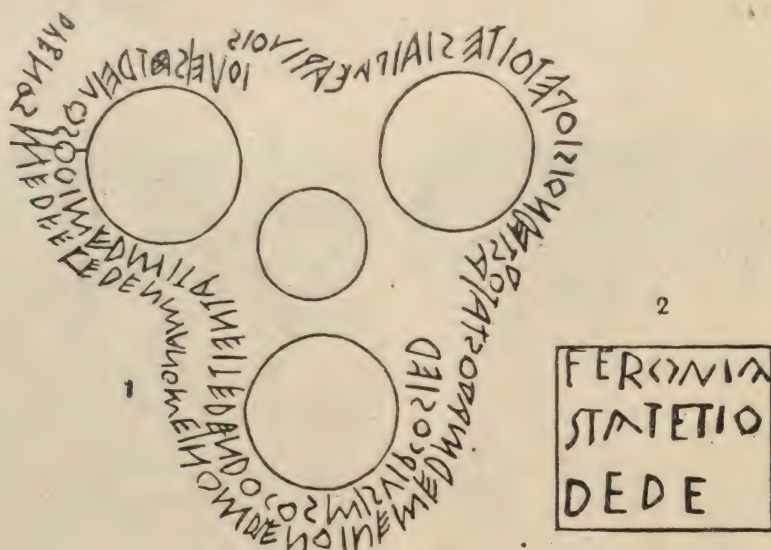 IOVEISATDEIVOSQOIMEDMITATNEITEDENDOCOSMISVIRCOSIED
ASTEDNOISIOPETOITESIAIPACARIVOIS
DVENOSMEDFEKEDENMANOMEINOMDVENOINEMEDMALOSTATOD
1
2
FERONIA
STATETIO
DEDE